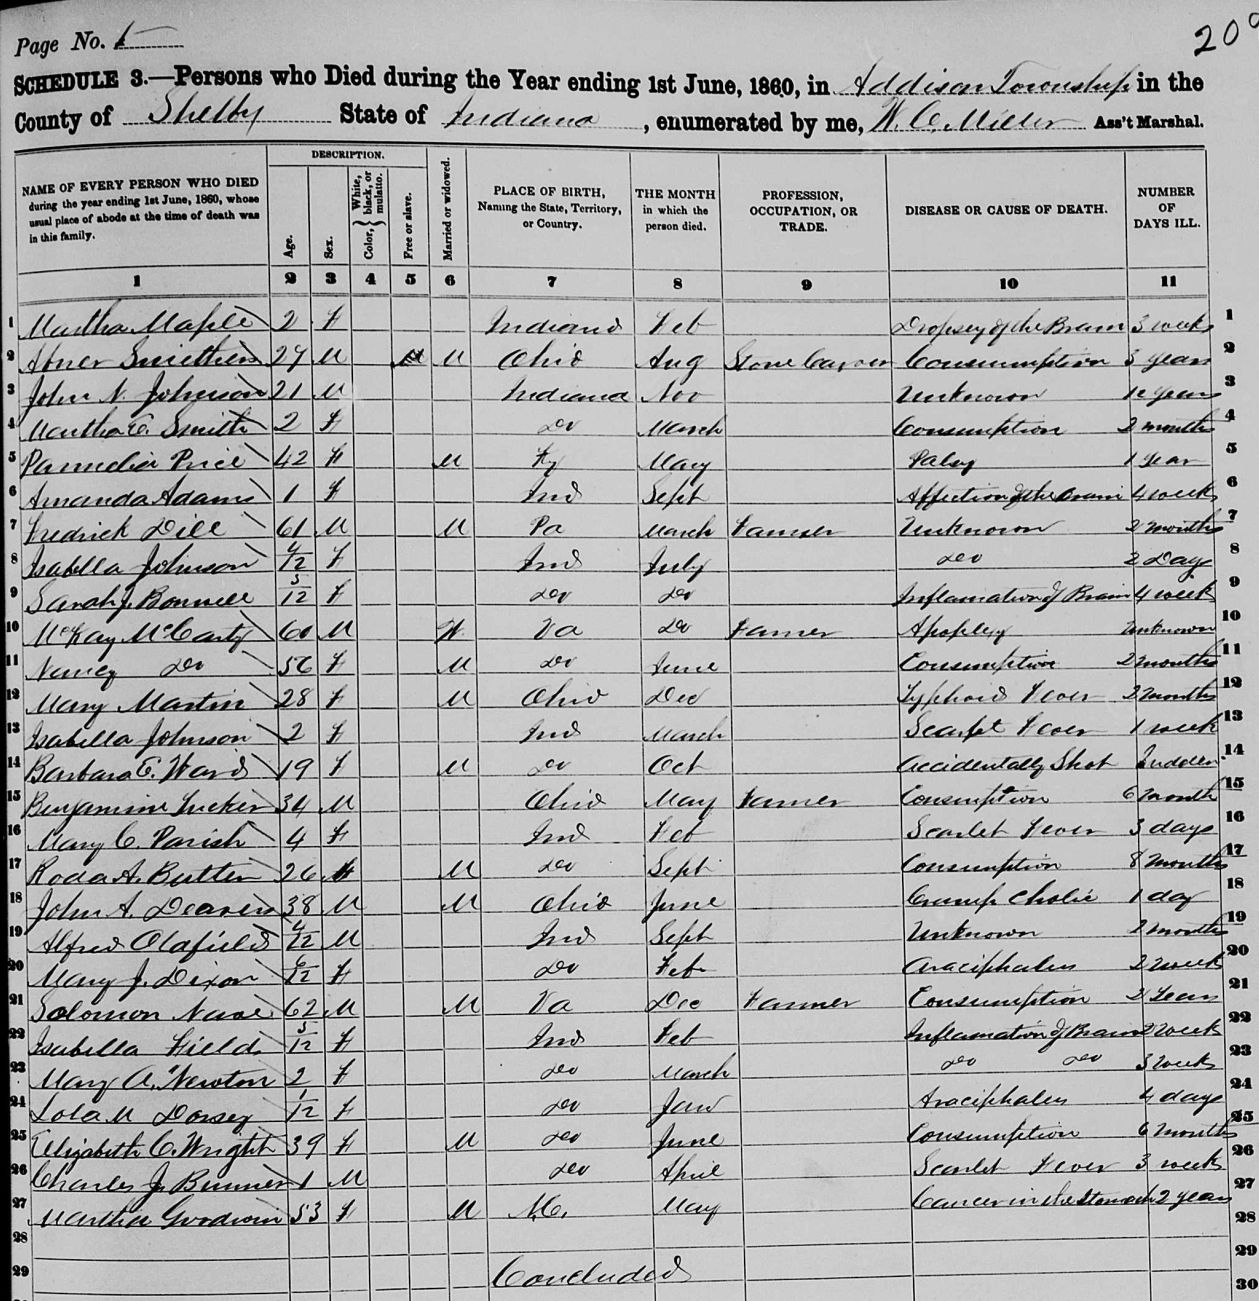 Page No. 1
SCHEDULE 3.—Persons who Died during the Year ending 1st June, 1860, in Addison Township in the
County of Shelby State of Indiana, enumerated by me, W. C. Miller Ass't Marshal.
DESCRIPTION.
NAME OF EVERY PERSON WHO DIED during the year ending 1st June, 1860, whose usual place of abode at the time of death was in this family. Age. Sex. Color, { White, black, or mulatto. Free or slave. Married or widowed. PLACE OF BIRTH, Naming the State, Territory, or Country. THE MONTH in which the person died. PROFESSION, OCCUPATION, OR TRADE. DISEASE OR CAUSE OF DEATH. NUMBER OF DAYS ILL.
1 2 3 4 5 6 7 8 9 10 11
1 Martha Maple 2 F Indiana Feb Dropsey of the Brain 3 weeks 1
2 Abner 29 M M Ohio Aug Stone Consumption 3 years 2
3 John N. Johnson 21 M Indiana Nov Unknown years 3
4 Martha E. Smith 2 F Do March Consumption 2 months 4
5 Pamelia Price 42 F M Ky May Palsy 1 Year 5
6 Amanda Adams 1 F Ind Sept Affection of the Brain 4 weeks 6
7 Fredrick Dill 61 M M Pa March Farmer Unknown 2 months 7
8 Isabella Johnson 4/12 F Ind July Do 2 Days 8
9 Sarah J Bonnell 5/12 F Do Do Inflamation of Brain 4 weeks 9
10 McKay McCarty 60 M W Va Do Farmer Apoplexy Unknown 10
11 Nancy Do 56 F M Do June Consumption 2 months 11
12 Mary Martin 28 F M Ohio Dec Typhoid Fever 2 months 12
13 Isabella Johnson 2 F Ind March Scarlet Fever 1 week 13
14 Barbara E. Ward 19 F M Do Oct Accidentally Shot Sudden 14
15 Benjamin Tucker 34 M Ohio May Farmer Consumption 6 month 15
16 Mary C. Parish 4 F Ind Feb Scarlet Fever 3 days 16
17 Roda A. 26 F M Do Sept Consumption 8 months 17
18 John A. 38 M M Ohio June Cramp Cholic 1 day 18
19 Alfred Oldfield M Ind Sept Unknown 2 months 19
20 Mary J. Dixon 6/12 F Do Feb 2 weeks 20
21 Solomon 62 M M Va Dec Farmer Consumption 2 Years 21
22 Isabella Fields 5/12 F Ind Feb Inflamation of Brain 2 weeks 22
23 Mary A. Newton 2 F Do March Do Do 3 weeks 23
24 Lola M Dorsey 1/12 F Do Jan 4 days 24
25 Elizabeth C. Wright 39 F M Do June Consumption 6 months 25
26 Charles J. 1 M Do April Scarlet Fever 3 weeks 26
27 Martha Goodwin 53 F M May Cancer in the Stomach 2 years 27
28 28
29 Concluded 29
30